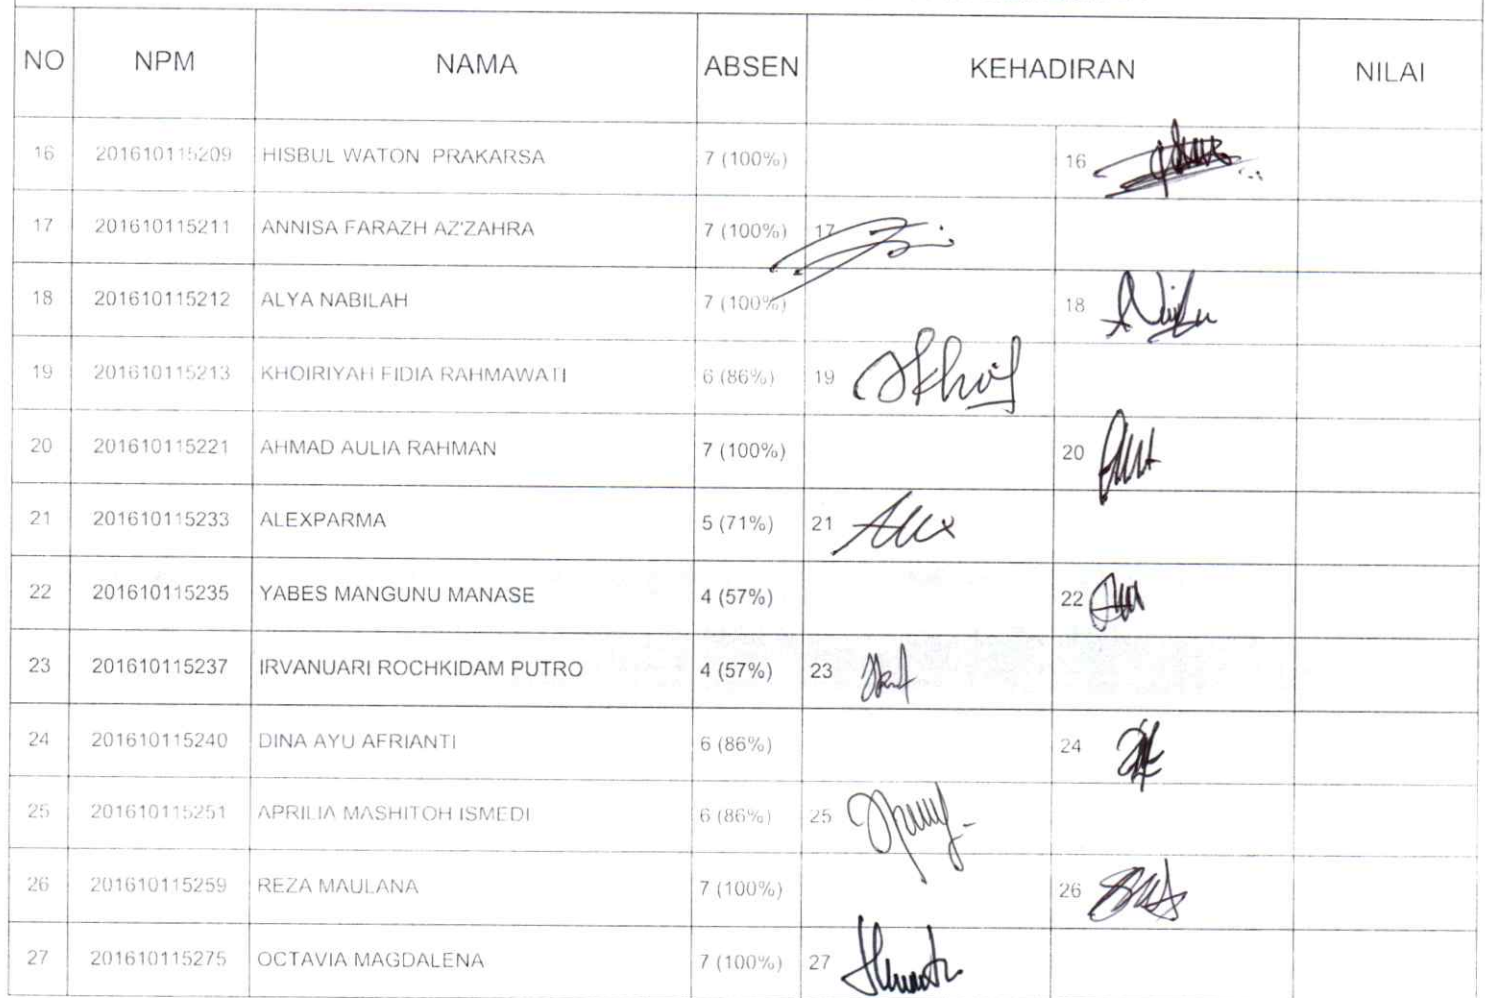 NO NPM NAMA ABSEN KEHADIRAN NILAI
16 201610115209 HISBUL WATON PRAKARSA 7 (100%) 16
17 201610115211 ANNISA FARAZH AZ'ZAHRA 7 (100%) 17
18 201610115212 ALYA NABILAH 7 (100%) 18
19 201610115213 KHOIRIYAH FIDIA RAHMAWATI 6 (86%) 19
20 201610115221 AHMAD AULIA RAHMAN 7 (100%) 20
21 201610115233 ALEXPARMA 5 (71%) 21 Alex
22 201610115235 YABES MANGUNU MANASE 4 (57%) 22
23 201610115237 IRVANUARI ROCHKIDAM PUTRO 4 (57%) 23
24 201610115240 DINA AYU AFRIANTI 6 (86%) 24
25 201610115251 APRILIA MASHITOH ISMEDI 6 (86%) 25
26 201610115259 REZA MAULANA 7 (100%) 26
27 201610115275 OCTAVIA MAGDALENA 7 (100%) 27